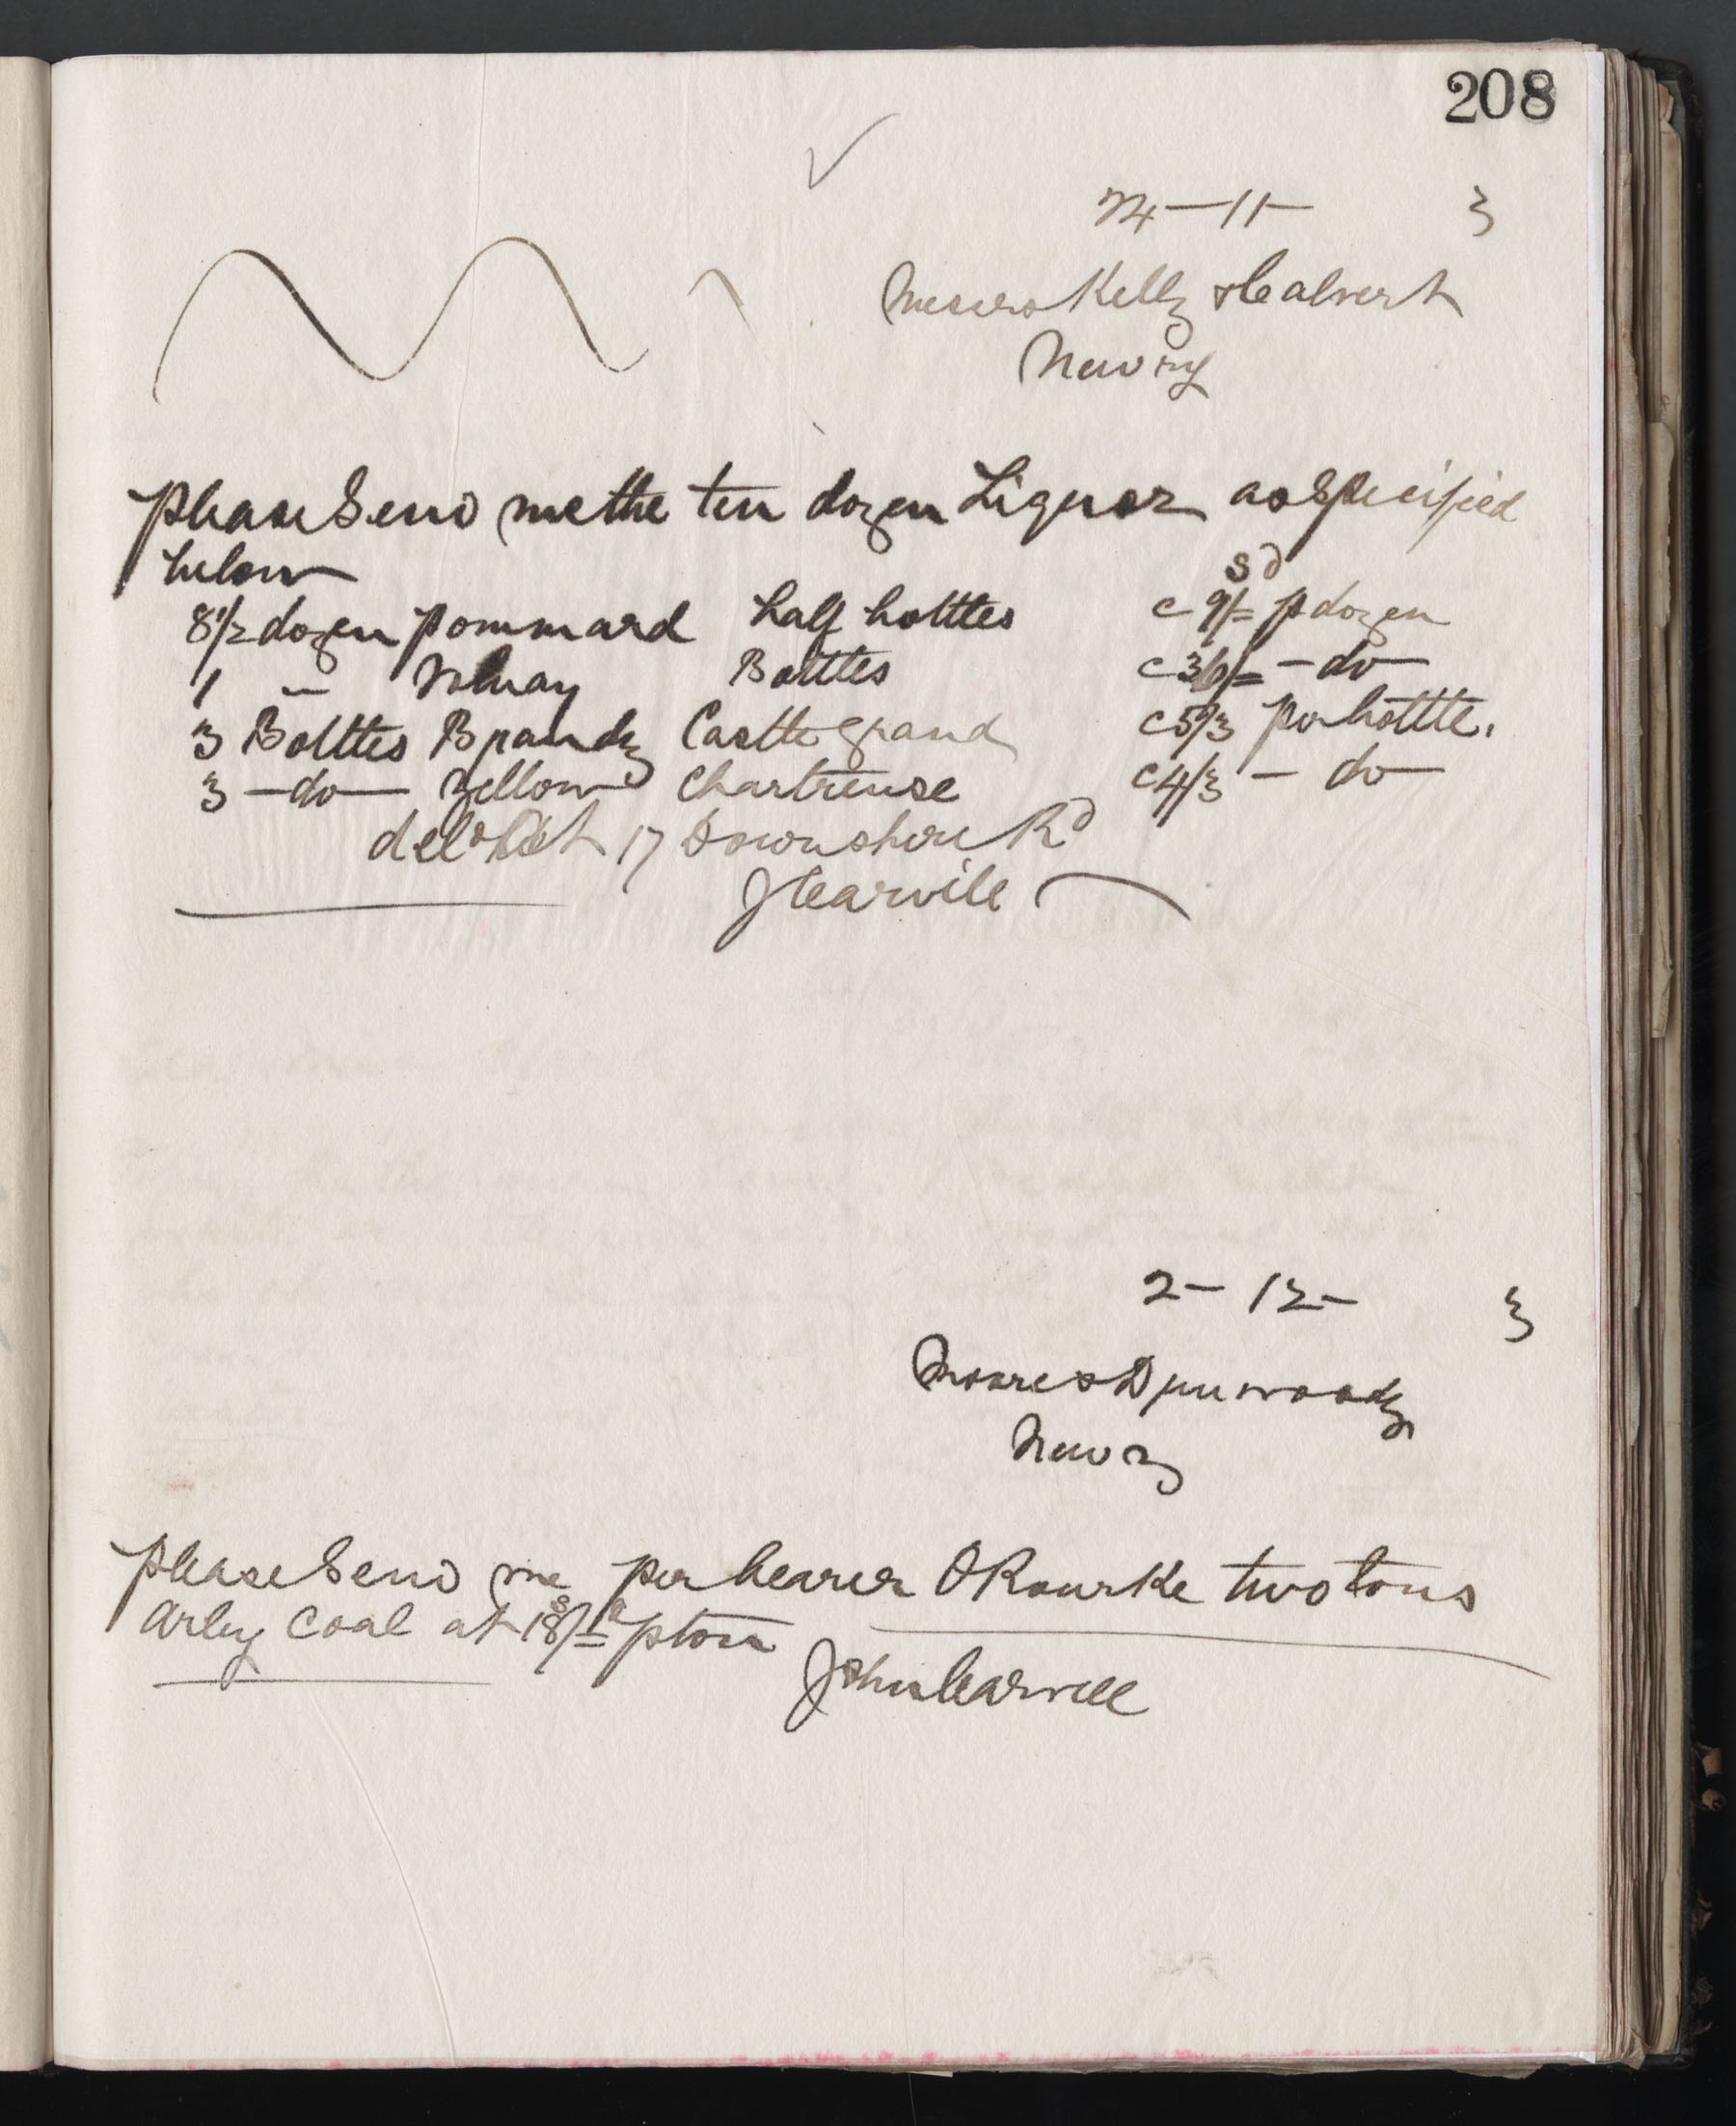 208
24-11- 3
Messrs Kelly & Calvert
Newry
Please Send me the ten dozen Liquor as Specified
below
s d
8 1/2 dozen Pommard half bottles c 9/= p dozen
1 " Volnay Bottles c 36/= - do
3 Bottles Brandy Castle Grand c 5/3 per bottle.
3 -do- Yellow Chartreuse c 4/3 - do
17 Downshire Rd
J Carvill
2- 12- 3
Moore & Dinwoody
Newry
Please Send me per bearer O Rourke two tons
Arley Coal at 18s/= p ton
John Carvill